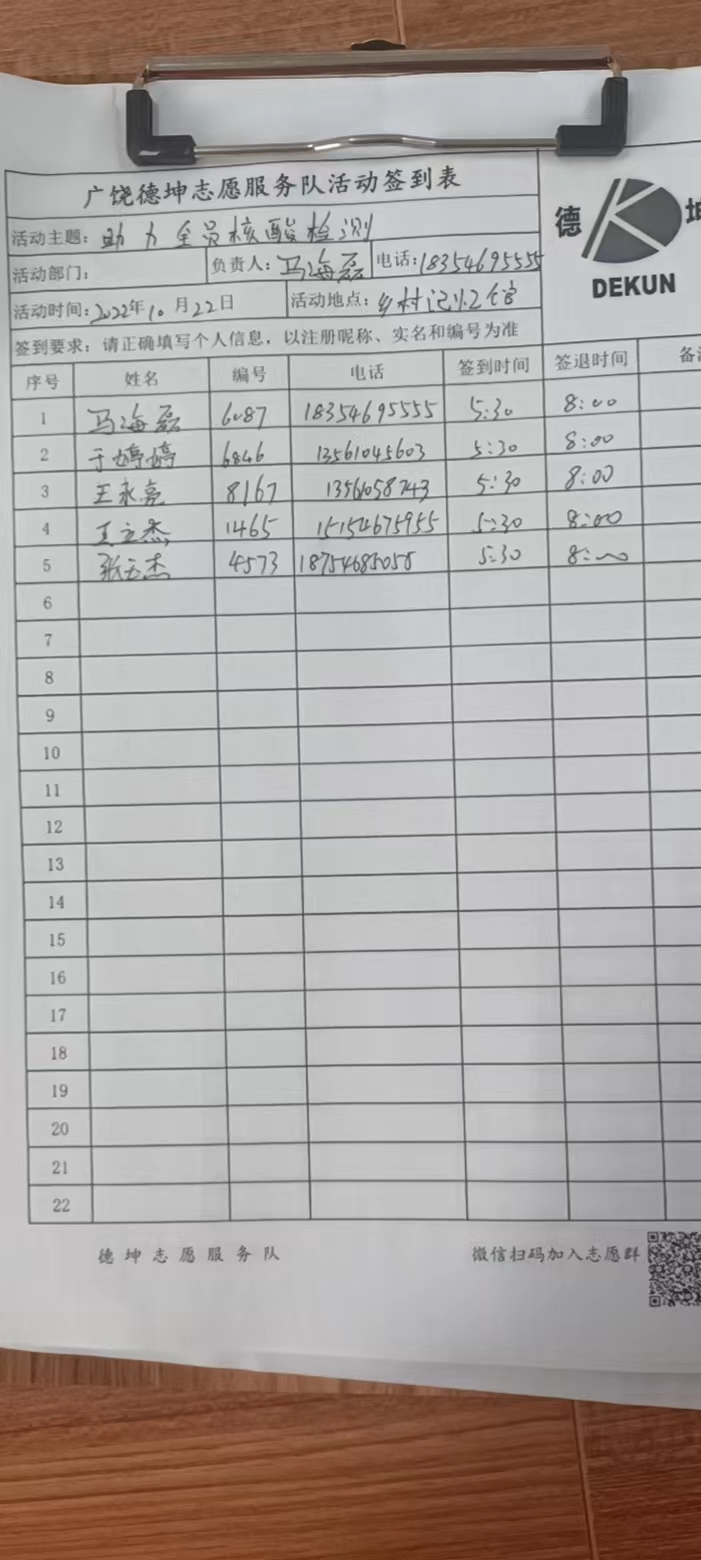 广饶德坤志愿服务队活动签到表
德 坤
DEKUN
活动主题：助力全员核酸检测
活动部门： 负责人：马海磊 电话：18354695555
活动时间：2022年10月22日 活动地点：乡村记忆馆
签到要求：请正确填写个人信息，以注册昵称、实名和编号为准
序号 姓名 编号 电话 签到时间 签退时间 备
1 马海磊 6087 18354695555 5:30 8:00
2 于婷婷 6846 13561045603 5:30 8:00
3 王永亮 8167 13561058743 5:30 8:00
4 王立杰 1465 15154675955 5:30 8:00
5 张杰 4573 18754685058 5:30 8:00
6
7
8
9
10
11
12
13
14
15
16
17
18
19
20
21
22
德坤志愿服务队 微信扫码加入志愿群